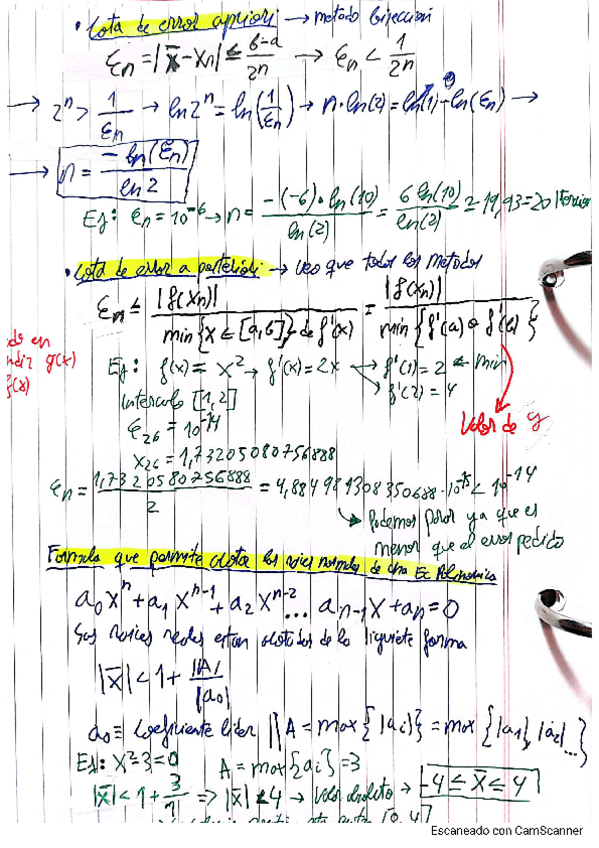 • Cota de error apriori → metodo bijeccion
εn = |x̄ - xn| ≤ b-a / 2n → εn < 1 / 2n
→ 2^n > 1/εn → ln 2^n = ln(1/εn) → n·ln(2) = ln(1) - ln(εn) →
0
→ n = -ln(εn) / ln 2
Ej: εn = 10^-6 → n = -(-6)·ln(10) / ln(2) = 6 ln(10) / ln(2) = 19,93 = 20
• Cota de error a posteriori → uso que todos los metodos
εn ≤ |f(xn)| / min{x ∈ [a,b]} de f'(x) = |f(xn)| / min{f'(a) o f'(b)}
en
g(x)
f(x)
Ej: f(x) = x² → f'(x) = 2x → f'(1) = 2 ← min
f'(2) = 4
Intervalo [1,2]
Valor de y
ε26 = 10^-14
x26 = 1,73205080756888
εn = 1,7320580756888 / 2 = 4,884981308350688·10^-15 < 10^-14
↳ Podemos parar ya que es
menor que el error pedido
Formula que permite acotar las raices normales de una Ec Polinomica
a0 x^n + a1 x^n-1 + a2 x^n-2 ... an-1 x + an = 0
Sus raices reales estan acotadas de la siguiete forma
|x̄| < 1 + |A| / |a0|
a0 ≡ Coeficiente lider || A = max{|ai|} = max{|a1|, |a2| ...}
Ej: x² - 3 = 0 A = max{ai} = 3
|x̄| < 1 + 3/1 ⇒ |x̄| < 4 → Valor absoluto → -4 ≤ x̄ ≤ 4
[0,4]
Escaneado con CamScanner